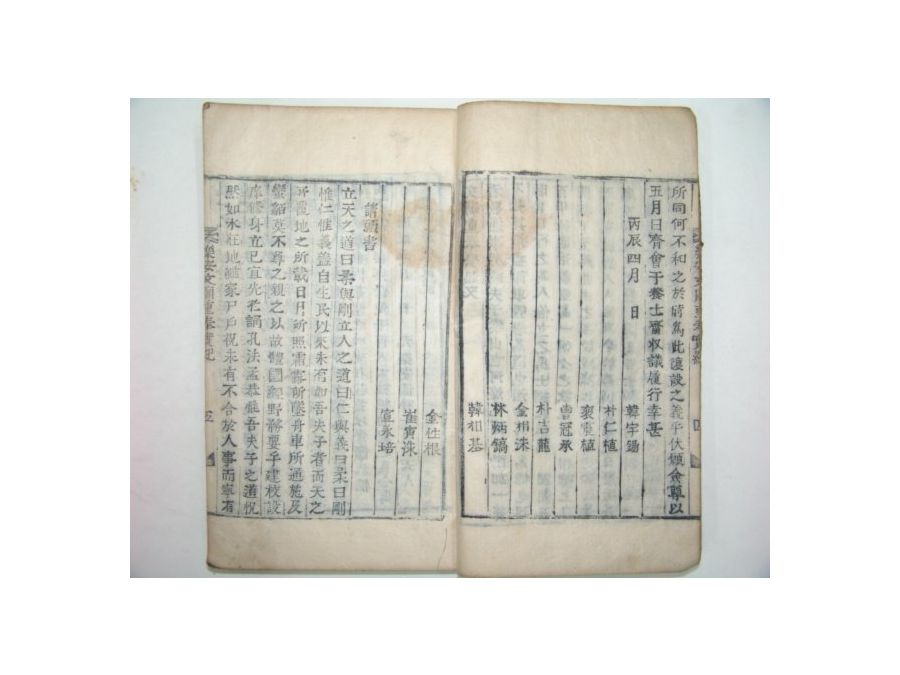 所同何不和之於時爲此讓設之義乎伏願僉尊以
五月日齊會于養士齋收議履行幸甚
丙辰四月 日
韓宇錫
朴仁植
裵重植
曺冠承
朴吉龍
金相洙
林炳鎬
韓相基
金 根
崔寅洙
宣永培
諸頭書
立天之道曰柔與剛立人之道曰仁與義曰柔曰剛
惟仁惟義蓋自生民以來未有如吾夫子者而天之
所覆地之所載日月所照霜露所墜舟車所通施及
蠻貊莫不尊之親之以故體國經野將要乎建校設
庠修身立己宜先 誦孔法孟恭惟吾夫子之道恍
然如水在地 家尸戶祝未有不合於人事而寧有
樂安文廟重 實記